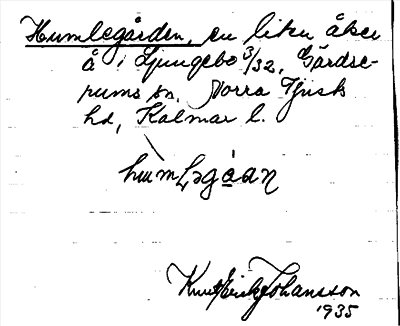 Humlegården, en liten åker
å i Ljungebo 3/32, Gärdse-
rums sn, Norra Tjust
hd, Kalmar l.
Knut Erik Johansson
1935